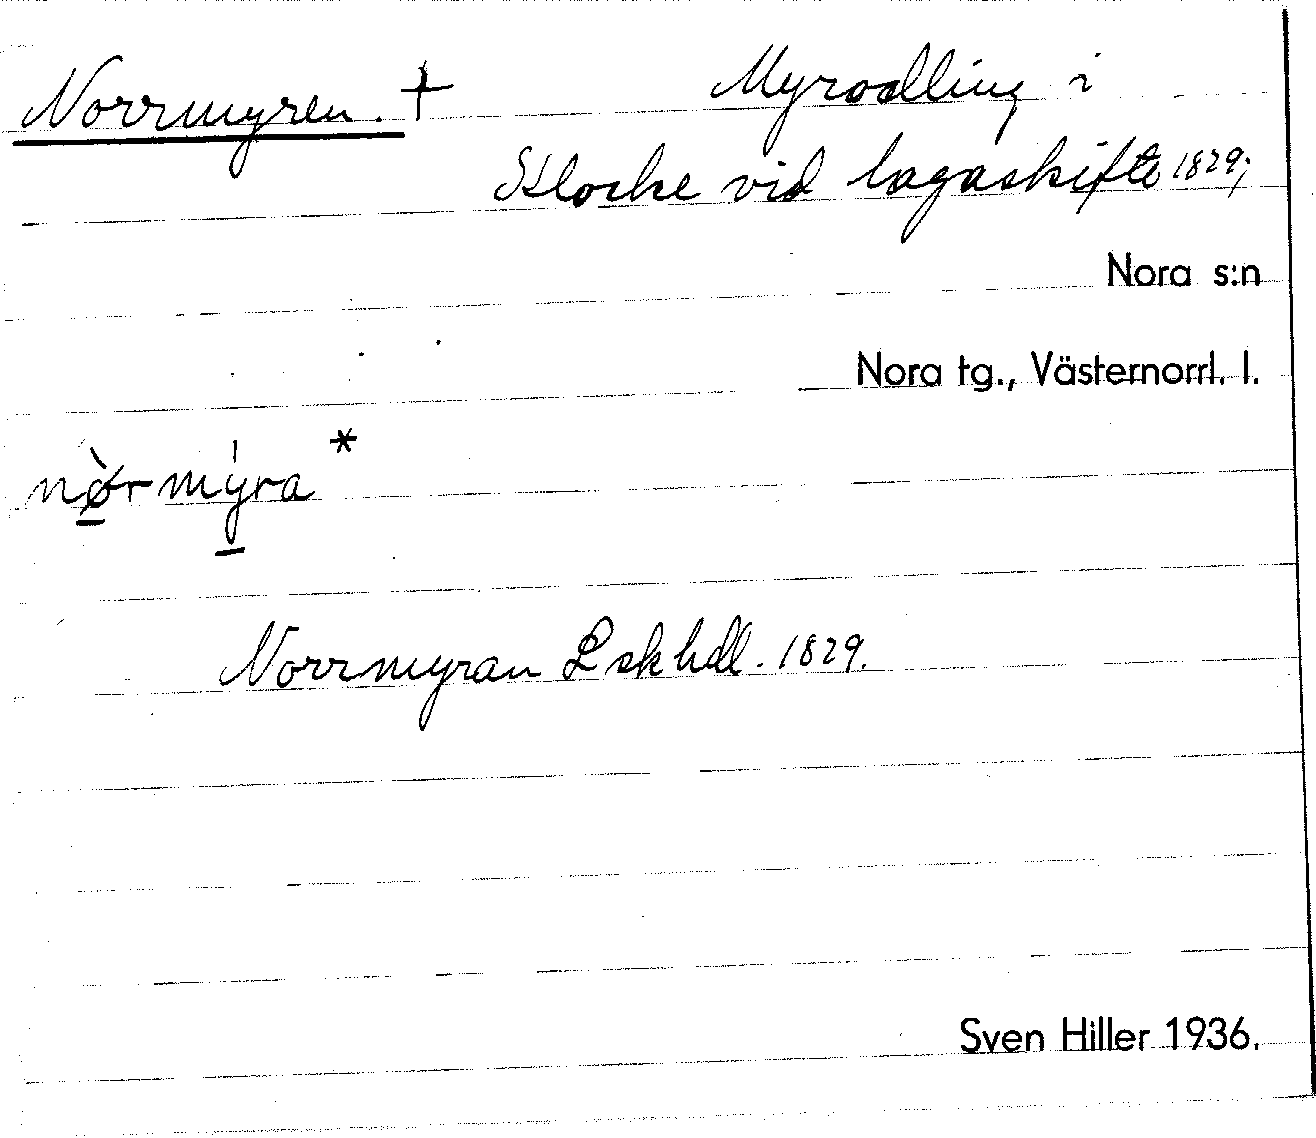 Norrmyren. + Myrodling i
Klocke vid lagaskifte 1829;
Nora s:n
Nora tg., Västernorrl. l.
nø̀rmýra *
Norrmyran Lskhdl. 1829.
Sven Hiller 1936.